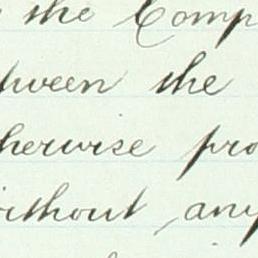 the Comp
tween the
herwise pro
ithout any